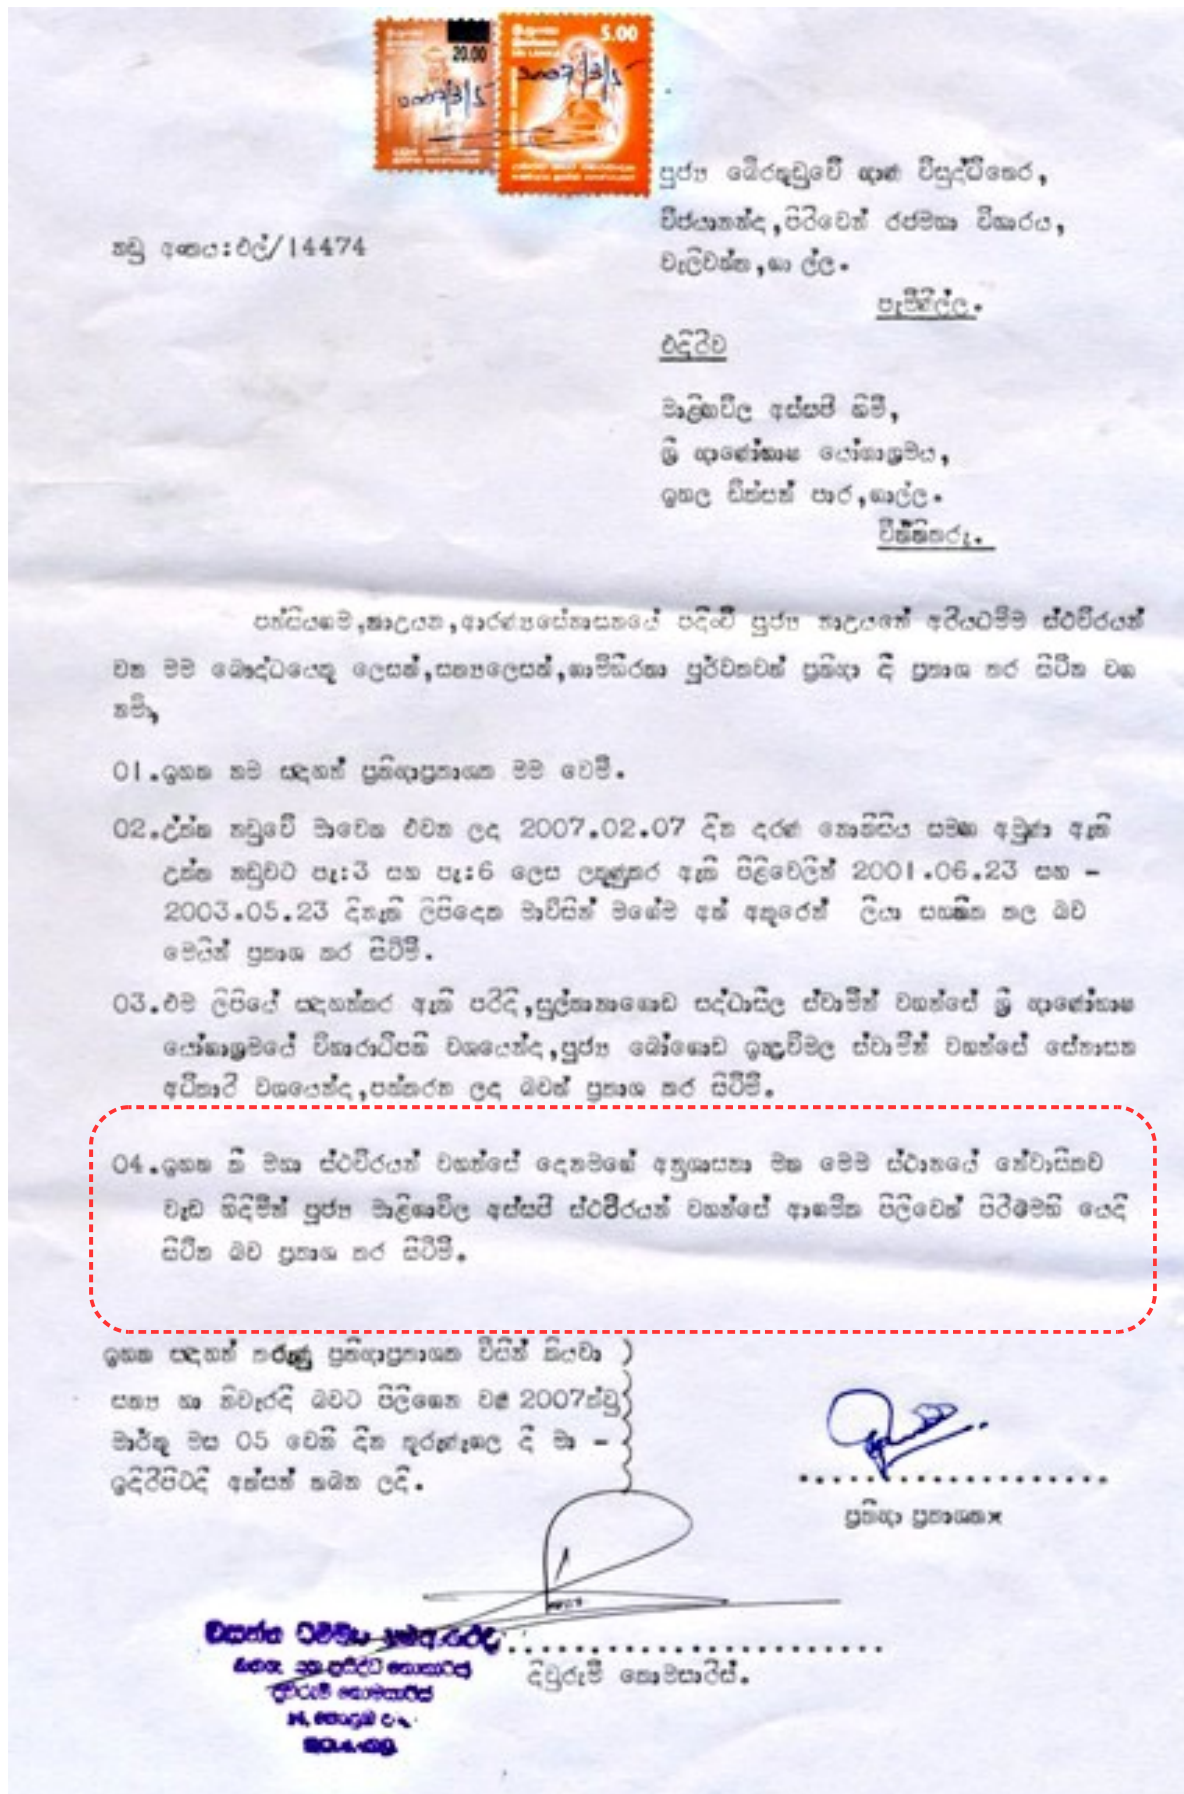 20.00
5.00
2007/3/5
2007/3/5
පූජ්‍ය බේරතුඩුවේ ඥාණ විසුද්ධිතෙර,
විජයානන්ද, පිරිවෙන් රජමහා විහාරය,
නඩු අංකය:එල්/14474
වැලිවත්ත, ගා ල්ල.
පැමිණිල්ල.
එදිරිව
මාළිගාවිල අස්සජි හිමි,
ශ්‍රී ඥාණෝභාෂ යෝගාශ්‍රමය,
ඉහල ඩික්සන් පාර, ගාල්ල.
විත්තිකරු.
පන්සියගම, නාඋයන, ආරණ්‍යසේනාසනයේ පදිංචි පූජ්‍ය නාඋයනේ අරියධම්ම ස්ථවිරයන්
වන මම බෞද්ධයෙකු ලෙසත්, සත්‍යලෙසත්, ගාම්භීරතා පූර්වකවත් ප්‍රතිඥා දී ප්‍රකාශ කර සිටින වග
නම්,
01. ඉහත නම සඳහන් ප්‍රතිඥාප්‍රකාශක මම වෙමි.
02. උක්ත නඩුවේ මාවෙත එවන ලද 2007.02.07 දින දරණ නොතිසිය සමඟ අමුණා ඇති
උක්ත නඩුවට පැ:3 සහ පැ:6 ලෙස ලකුණුකර ඇති පිළිවෙලින් 2001.06.23 සහ –
2003.05.23 දිනැති ලිපිදෙක මාවිසින් මගේම අත් අකුරෙන් ලියා සහතික කල බව
මෙයින් ප්‍රකාශ කර සිටිමි.
03. එම ලිපියේ සඳහන්කර ඇති පරිදි, සුල්තානාගොඩ සද්ධාසීල ස්වාමීන් වහන්සේ ශ්‍රී ඥාණෝභාෂ
යෝගාශ්‍රමයේ විහාරාධිපති වශයෙන්ද, පූජ්‍ය බෝගොඩ ඉන්ද්‍රවිමල ස්වාමීන් වහන්සේ සේනාසන
අධිකාරී වශයෙන්ද, පත්කරන ලද බවත් ප්‍රකාශ කර සිටිමි.
04. ඉහත කී මහා ස්ථවිරයන් වහන්සේ දෙනමගේ අනුශාසනා මත මෙම ස්ථානයේ නේවාසිකව
වැඩ හිදිමින් පූජ්‍ය මාළිගාවිල අස්සජි ස්ථවිරයන් වහන්සේ ආගමික පිලිවෙත් පිරීමෙහි යෙදි
සිටින බව ප්‍රකාශ කර සිටිමි.
ඉහත සඳහන් කරුණු ප්‍රතිඥාප්‍රකාශක විසින් කියවා
සත්‍ය හා නිවැරදි බවට පිලිගෙන වර්ෂ 2007ක්වූ
මාර්තු මස 05 වෙනි දින කුරුණෑගල දී මා –
ඉදිරිපිටදි අත්සන් තබන ලදි.
ප්‍රතිඥා ප්‍රකාශක
දිවුරුම් කොමසාරිස්.
දිවුරුම් කොමසාරිස්